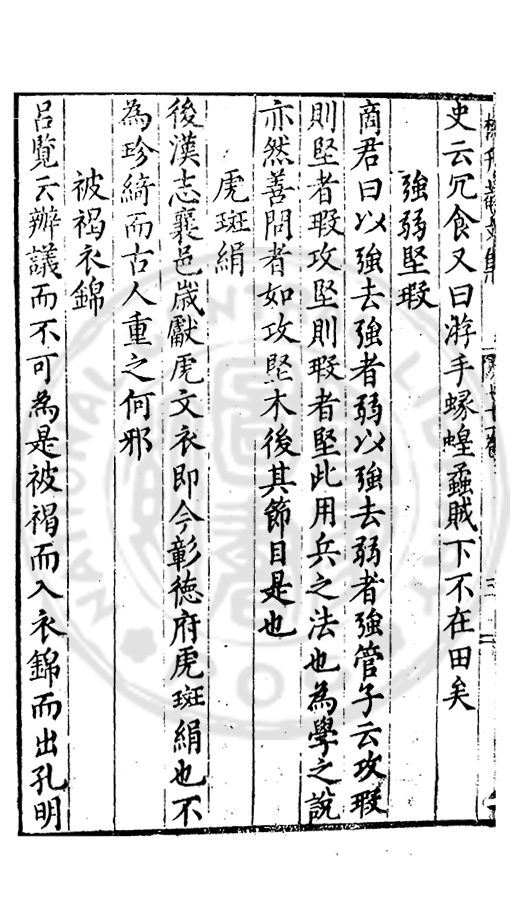 史云冗食又曰游手蝝蝗蟊賊下不在田矣
強弱堅瑕
商君曰以強去強者弱以強去弱者強管子云攻瑕
則堅者瑕攻堅則瑕者堅此用兵之法也為學之說
亦然善問者如攻堅木後其節目是也
虎斑絹
後漢志襄邑歲獻虎文衣即今彰德府虎斑絹也不
為珍綺而古人重之何邪
被褐衣錦
呂覽云辦議而不可為是被褐而入衣錦而出孔明